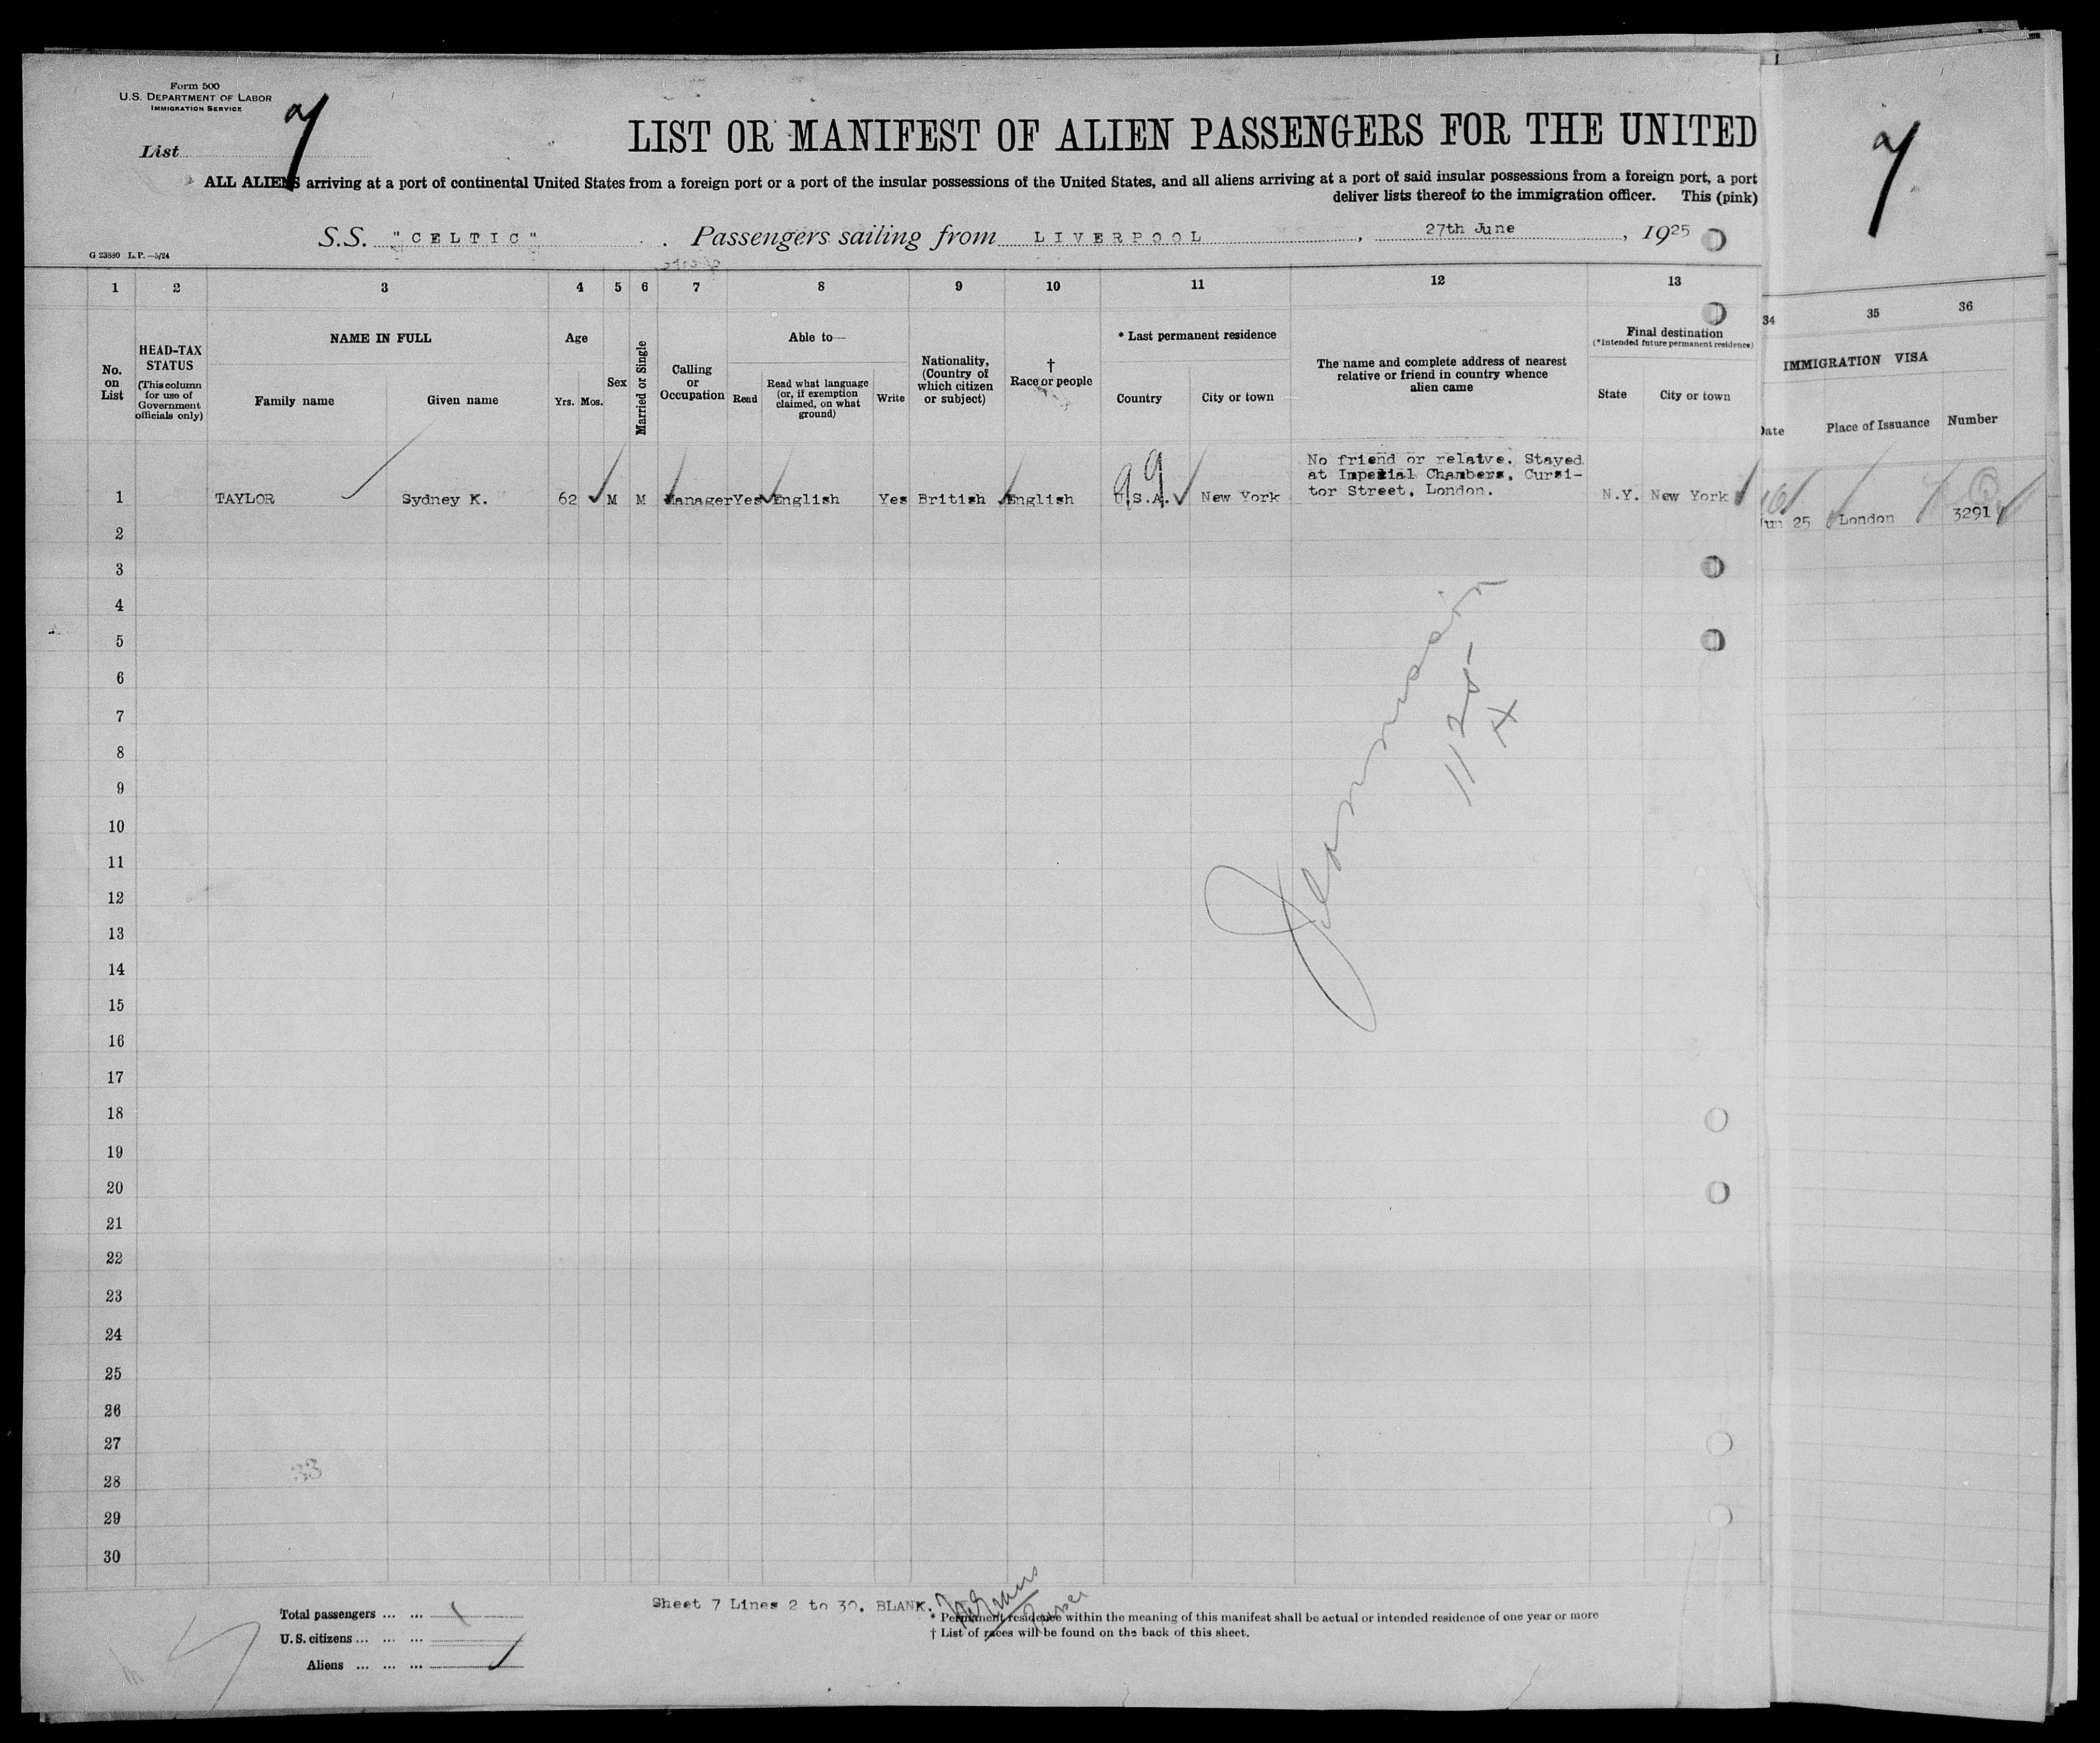 Form 500
U.S. DEPARTMENT OF LABOR
IMMIGRATION SERVICE
List 7
LIST OR MANIFEST OF ALIEN PASSENGERS FOR THE UNITED
ALL ALIENS arriving at a port of continental United States from a foreign port or a port of the insular possessions of the United States, and all aliens arriving at a port of said insular possessions from a foreign port, a port
deliver lists thereof to the immigration officer. This (pink)
S.S. "CELTIC" . Passengers sailing from LIVERPOOL, 27th June, 1925
G 23880 L.P.—5/24
7
1 2 3 4 5 6 7 8 9 10 11 12 13
No. on List
HEAD-TAX STATUS
(This column for use of Government officials only)
NAME IN FULL
Family name
Given name
Age
Yrs. Mos.
Sex
Married or Single
Calling or Occupation
Able to—
Read
Read what language (or, if exemption claimed, on what ground)
Write
Nationality, (Country of which citizen or subject)
†
Race or people
* Last permanent residence
Country
City or town
The name and complete address of nearest relative or friend in country whence alien came
Final destination
(*Intended future permanent residence)
State
City or town
34 35 36
IMMIGRATION VISA
Date
Place of Issuance
Number
No friend or relatve. Stayed
at Imperial Chambers, Cursi-
tor Street, London.
1 TAYLOR Sydney K. 62 M M Manager Yes English Yes British English U.S.A. New York N.Y. New York
99
Jun 25 London 3291
2
3
4
5
6
7
8
9
10
11
12
13
14
15
16
17
18
19
20
21
22
23
24
25
26
27
28
29
30
33
Sheet 7 Lines 2 to 30. BLANK.
Purser
Total passengers ... ... 1
U.S. citizens ... ... ...
Aliens ... ... ... 1
* Permanent residence within the meaning of this manifest shall be actual or intended residence of one year or more
† List of races will be found on the back of this sheet.